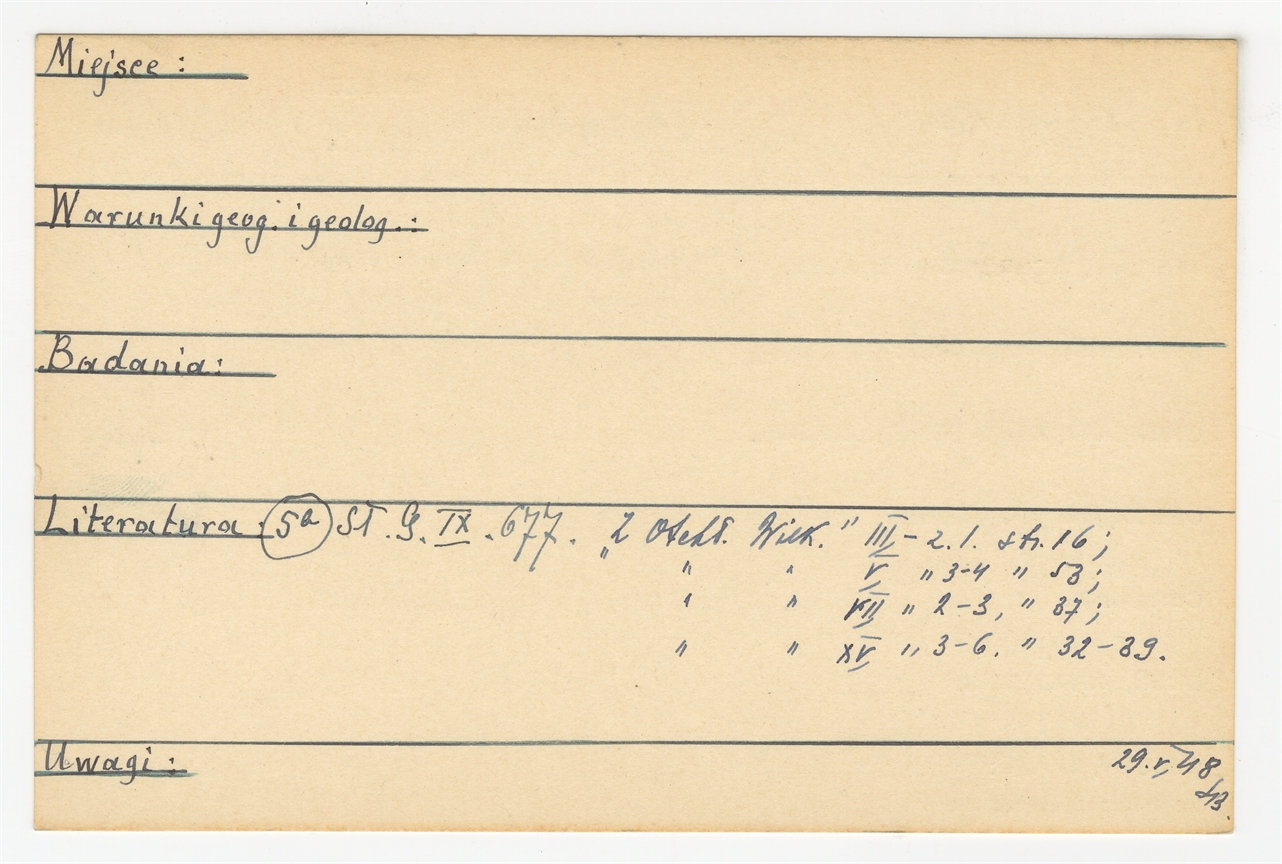 Miejsce :
Warunki geog. i geolog. :
Badania:
Literatura : 5a Sł. G. IX . 677. „Z Otchł. Wiek." III - z. 1. str. 16 ;
" " V " 3-4 " 53 ;
" " VII " 2-3, " 37 ;
" " XV " 3-6. " 32-39.
Uwagi :
29. V. 48